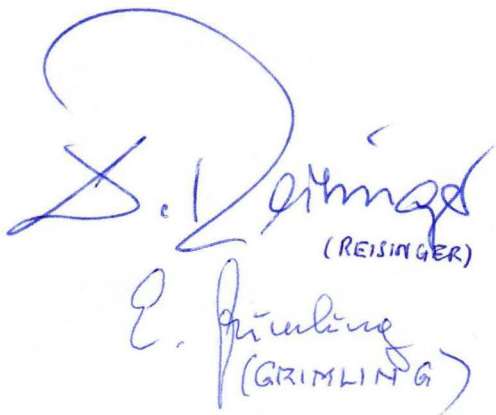 D. Reisinger
(REISINGER)
E. Grimling
(GRIMLING)